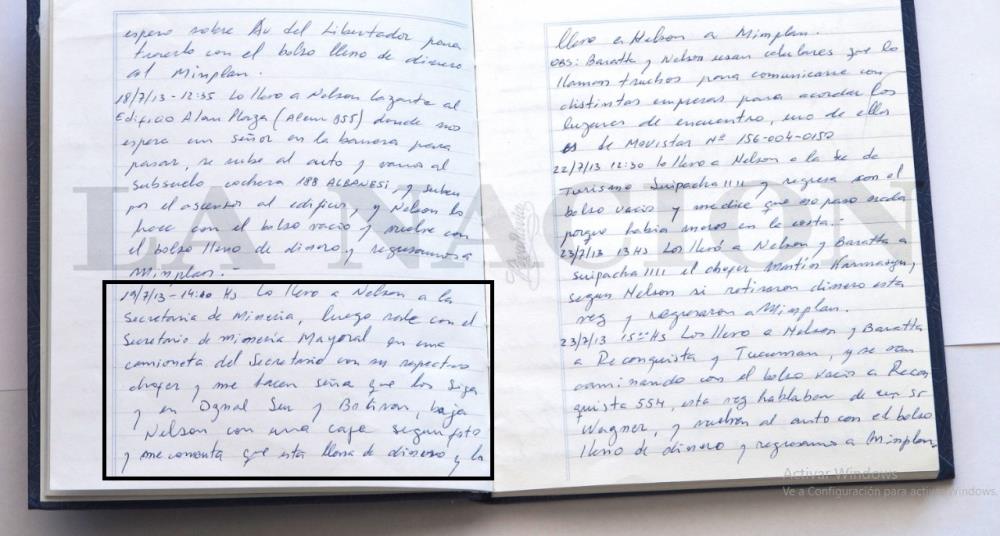 espera sobre Av del Libertador para
traerlo con el bolso lleno de dinero
al Minplan.
18/7/13 - 12:35 Lo llevo a Nelson Lazarte al
Edificio Alan Plaza (Alem 855) donde nos
espera un señor en la barrera para
pasar, se sube al auto y vamos al
subsuelo cochera 188 ALBANESI y suben
por el ascensor al edificio, y Nelson lo
hace con el bolso vacio y vuelve con
el bolso lleno de dinero, y regresamos a
Minplan.-
19/7/13 - Hs Lo llevo a Nelson a la
Secretaria de Mineria, luego sale con el
Secretario de mineria Mayoral en una
camioneta del Secretario con su respectivo
chofer y me hacen seña que los siga
y en y Bolivar, baja
Nelson con una caja
y me comenta que esta llena de dinero y la
llevo a Nelson a Minplan.
OBS: Baratta y Nelson usan celulares que lo
llaman truchos para comunicarse con
distintas empresas para acordar los
lugares de encuentro, uno de ellos
es de Movistar Nº 156-004-0152
22/7/13 12:30 lo llevo a Nelson a la Sec de
Turismo Suipacha 1111 y regresa con el
bolso vacio y me dice que no paso nada
porque habia moros en la costa.-
23/7/13 13 Hs Los llevó a Nelson y Baratta a
Suipacha 1111 el chofer Martin
segun Nelson si retiraron dinero esta
vez y regresaron a Minplan.
23/7/13 15 Hs Los llevo a Nelson y Baratta
a Reconquista y Tucuman, y se van
caminando con el bolso vacio a Recon
quista 554, esta vez hablaban de un Sr
Wagner, y vuelven al auto con el bolso
lleno de dinero y regresamos a Minplan
LA NACION
Activar Windows
Ve a Configuración para activar Windows.